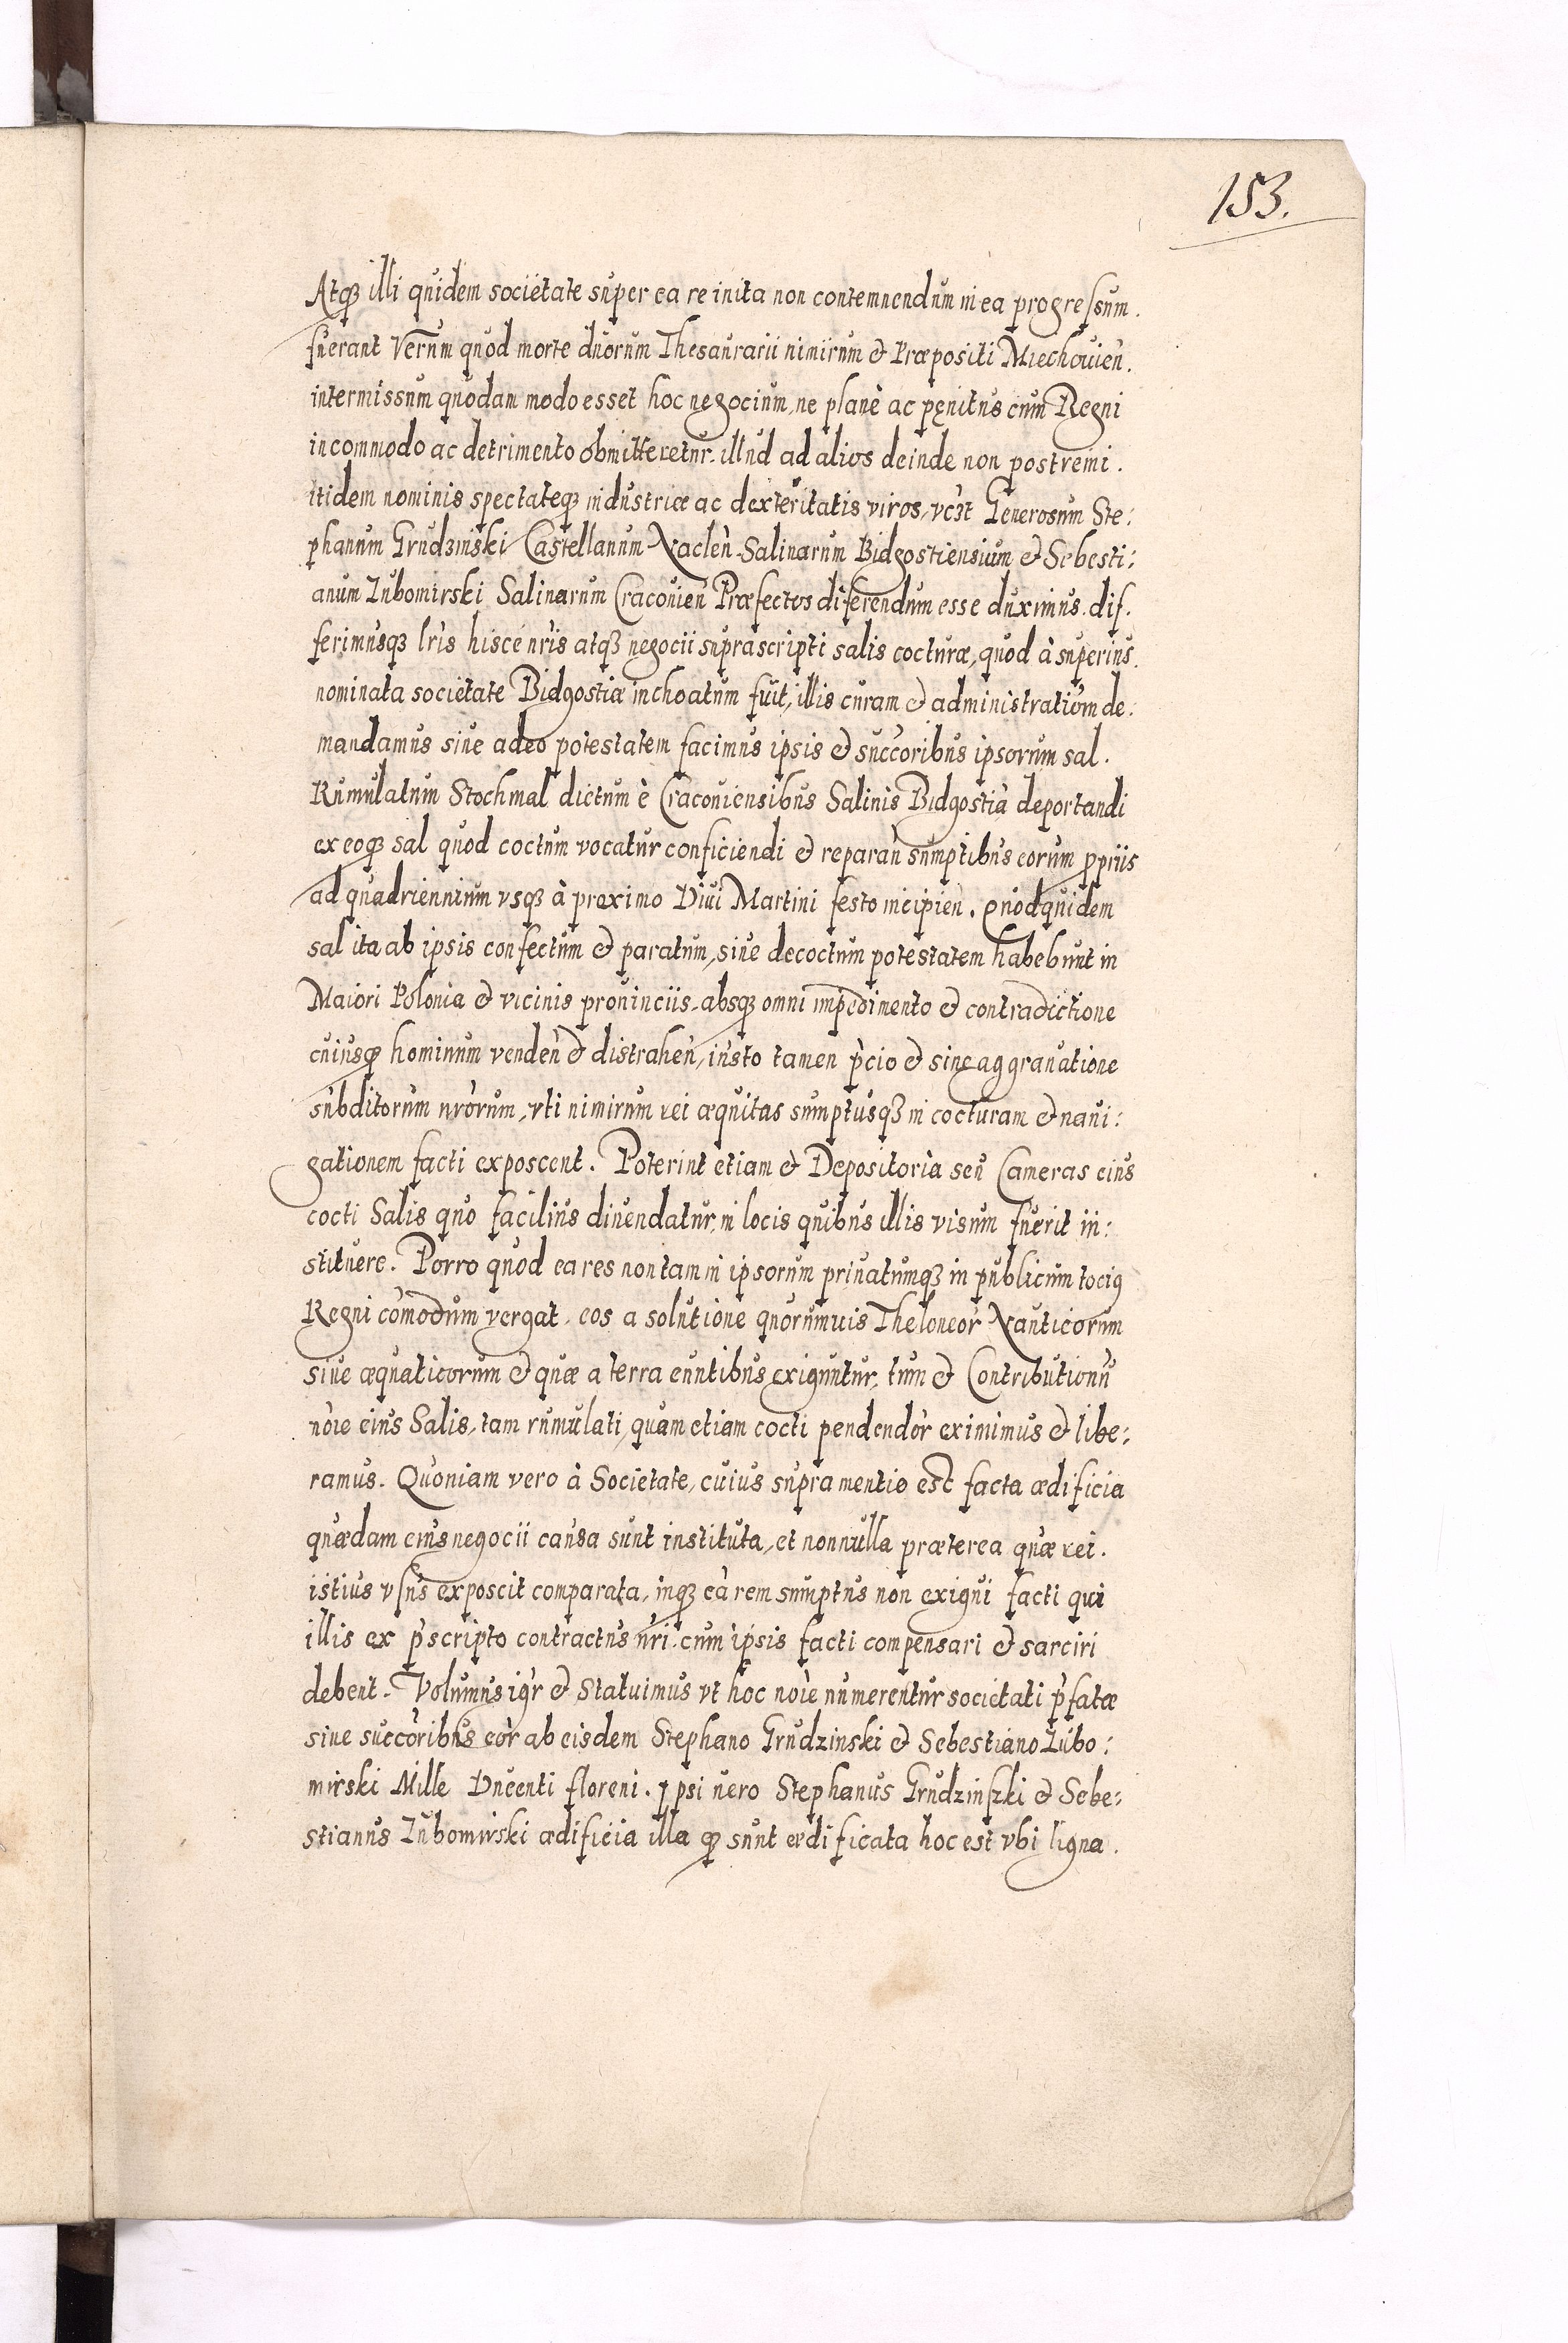 153.
Atqꝫ illi quidem societate super ea re inita non contemnendum in ea progressum.
fuerant Verum quod morte duorum Thesaurarii nimirum & Præpositi Miechouien̄.
intermissum quodam modo esset hoc negocium, ne planè ac pęnitus cum Regni
incommodo ac detrimento obmitteretur. illud ad alios deinde non postremi.
itidem nominis spectateqꝫ industriæ ac dexteritatis viros, vcꝫt Generosum Ste:
phanum Grudzinski Castellanum Naclen̄. Salinarum Bidgostiensium & Sebesti:
anum Lubomirski Salinarum Cracouien̄ Præfectos diferendum esse duximus. dif.
ferimusqꝫ lr̄is hisce nr̄is atqꝫ negocii suprascripti salis cocturæ, quod à superius.
nominata societate Bidgostiæ inchoatum fuit, illis curam & administratiōm de:
mandamus siue adeo potestatem facimus ipsis & succōribus ipsorum sal.
Rumulatum Stochmal dictum è Cracouiensibus Salinis Bidgostiā deportandi
ex eoqꝫ sal quod coctum vocatur conficiendi & reparan̄ sumptibus eorum ꝓpriis
ad quadriennium vsqꝫ à proximo Diui Martini festo incipien̄. Quodquidem
sal ita ab ipsis confectum & paratum, siue decoctum potestatem habebunt in
Maiori Polonia & vicinis prouinciis. absqꝫ omni impedimento & contradictione
cuiusqꝫ hominum venden̄ & distrahen̄, iusto tamen p̄cio & sine aggrauatione
subditorum nr̄orum, vti nimirum rei æquitas sumptusqꝫ in cocturam & naui:
gationem facti exposcent. Poterint etiam & Depositoria seu Cameras eius
cocti Salis quo facilius diuendatur, in locis quibus illis visum fuerit in:
stituere. Porro quod ea res non tam in ipsorum priuatumqꝫ in publicum tociꝰ
Regni cōmodum vergat. eos a solutione quorumuis Theloneoꝝ Nauticorum
siue æquaticorum & quæ a terra euntibus exiguntur, tum & Contributionū
nōie eius Salis, tam rumulati, quam etiam cocti pendendoꝝ eximimus & libe:
ramus. Quoniam vero à Societate, cuius supra mentio est facta ædificia
quædam eius negocii causa sunt instituta, et nonnulla præterea quæ rei.
istius vsus exposcit comparata, inqꝫ eā rem sumptus non exigui facti qui
illis ex p̄scripto contractus nr̄i. cum ipsis facti compensari & sarciri
debent. Volumus igr̄ & Statuimus vt hoc nōie numerentur societati p̄fatæ
siue succōribus eoꝝ ab eisdem Stephano Grudzinski & Sebestiano Lubo:
mirski Mille Ducenti floreni. Ipsi uero Stephanus Grudzinszki & Sebe:
stianus Lubomirski ædificia illa qꝫ sunt ædificata hoc est vbi ligna.